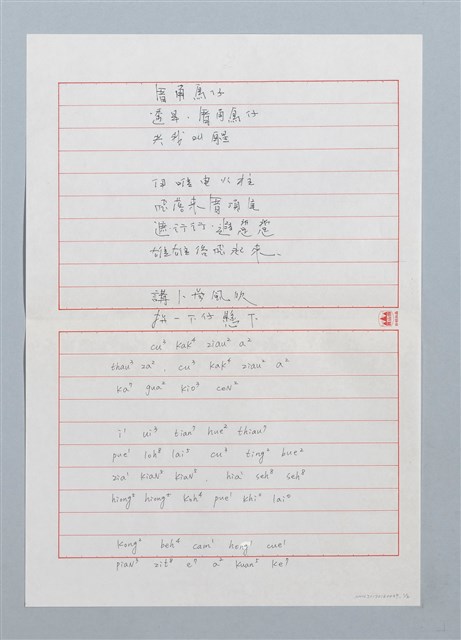 厝角鳥仔
透早，厝角鳥仔
共我叫醒
伊 電火柱
飛落來厝頂尾
遮行行，遐踅踅
雄雄佫飛起來。
講卜 風吹
一下仔懸下
cu³ kak⁴ ziau² a²
thau³ za², cu³ kak⁴ ziau² a²
ka⁷ gua² kio³ ceN²
i¹ ui³ tian⁷ hue² thiau⁷
pue¹ loh⁸ lai⁵ cu³ ting² bue²
zia¹ kiaN⁵ kiaN⁵, hia¹ seh⁸ seh⁸
hiong⁵ hiong⁵ koh⁴ pue¹ khi² lai⁵
kong² beh⁴ cam¹ hong¹ cue¹
piaN³ zit⁸ e⁷ a² kuan⁵ ke⁷